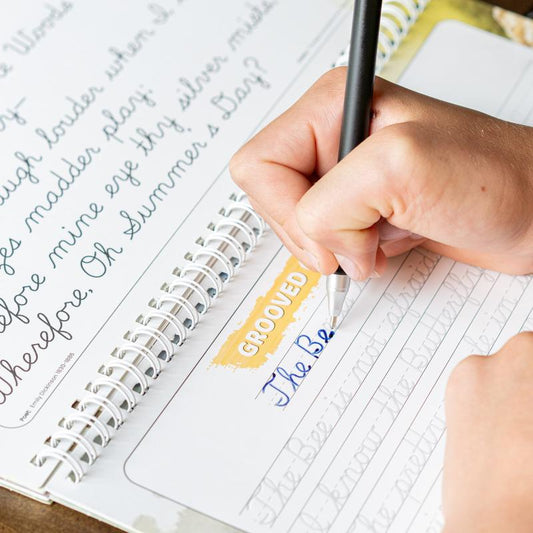 e Woods
ay—
ough louder when I
ges madder play;
efore mine eye thy silver mists
Wherefore, Oh Summer's Day?
Poet: Emily Dickinson 1830-1886
GROOVED
The Be
The Bee is not afraid
I know the